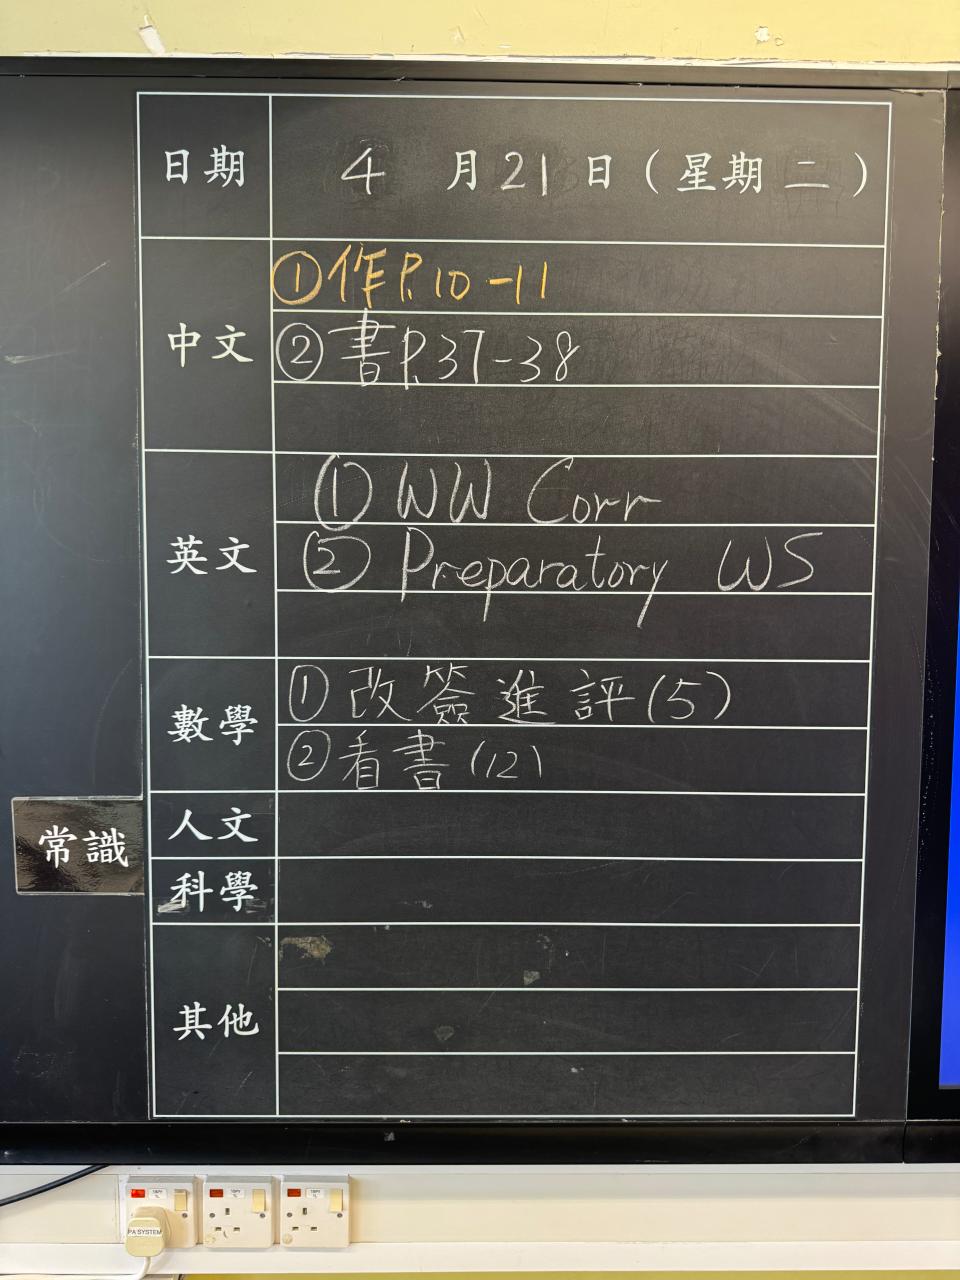 日期 4月21日（星期二）
中文
①作P.10-11
②書P.37-38
英文
① WW Corr
② Preparatory WS
數學
①改簽進評(5)
②看書(12)
人文
常識
科學
其他
PA SYSTEM